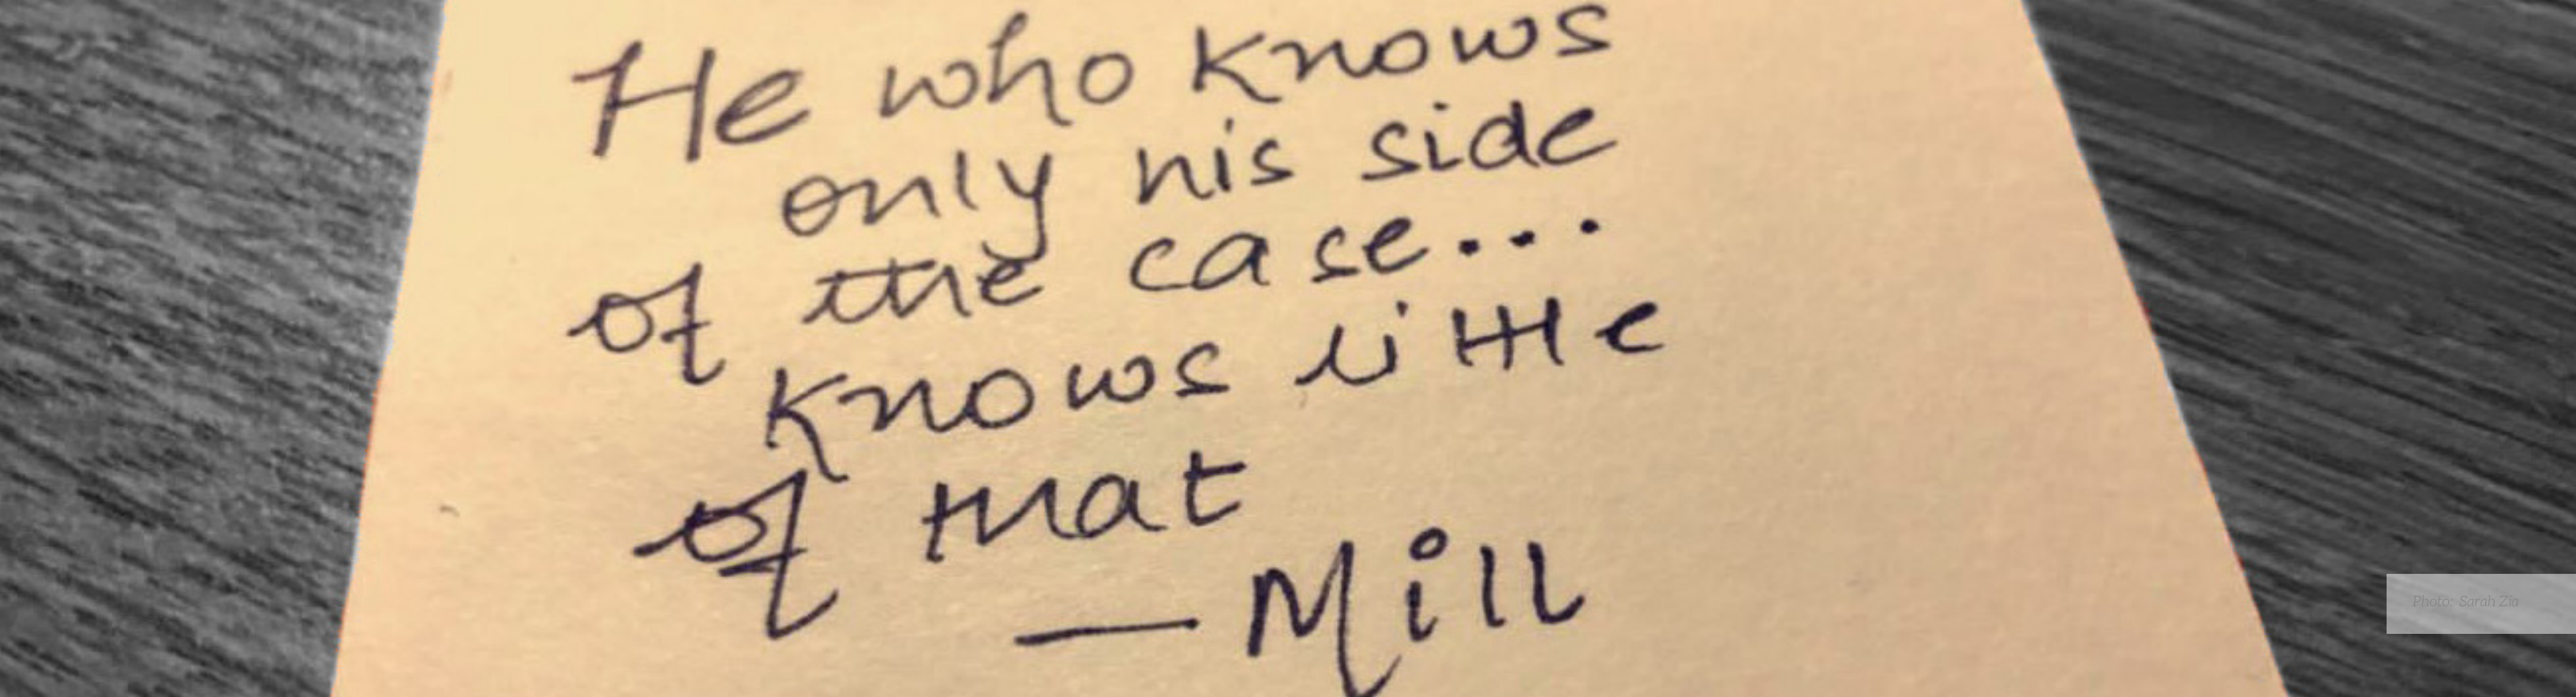 He who knows
only his side
of the case...
knows little
of that
— Mill
Photo: Sarah Zia